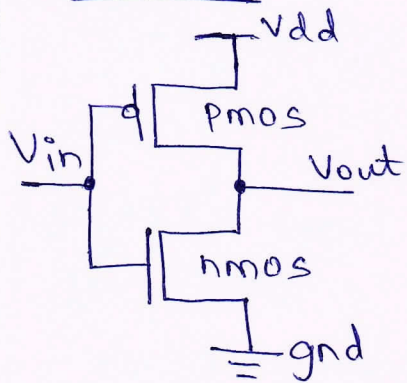 Vdd
pmos
Vin
Vout
nmos
gnd